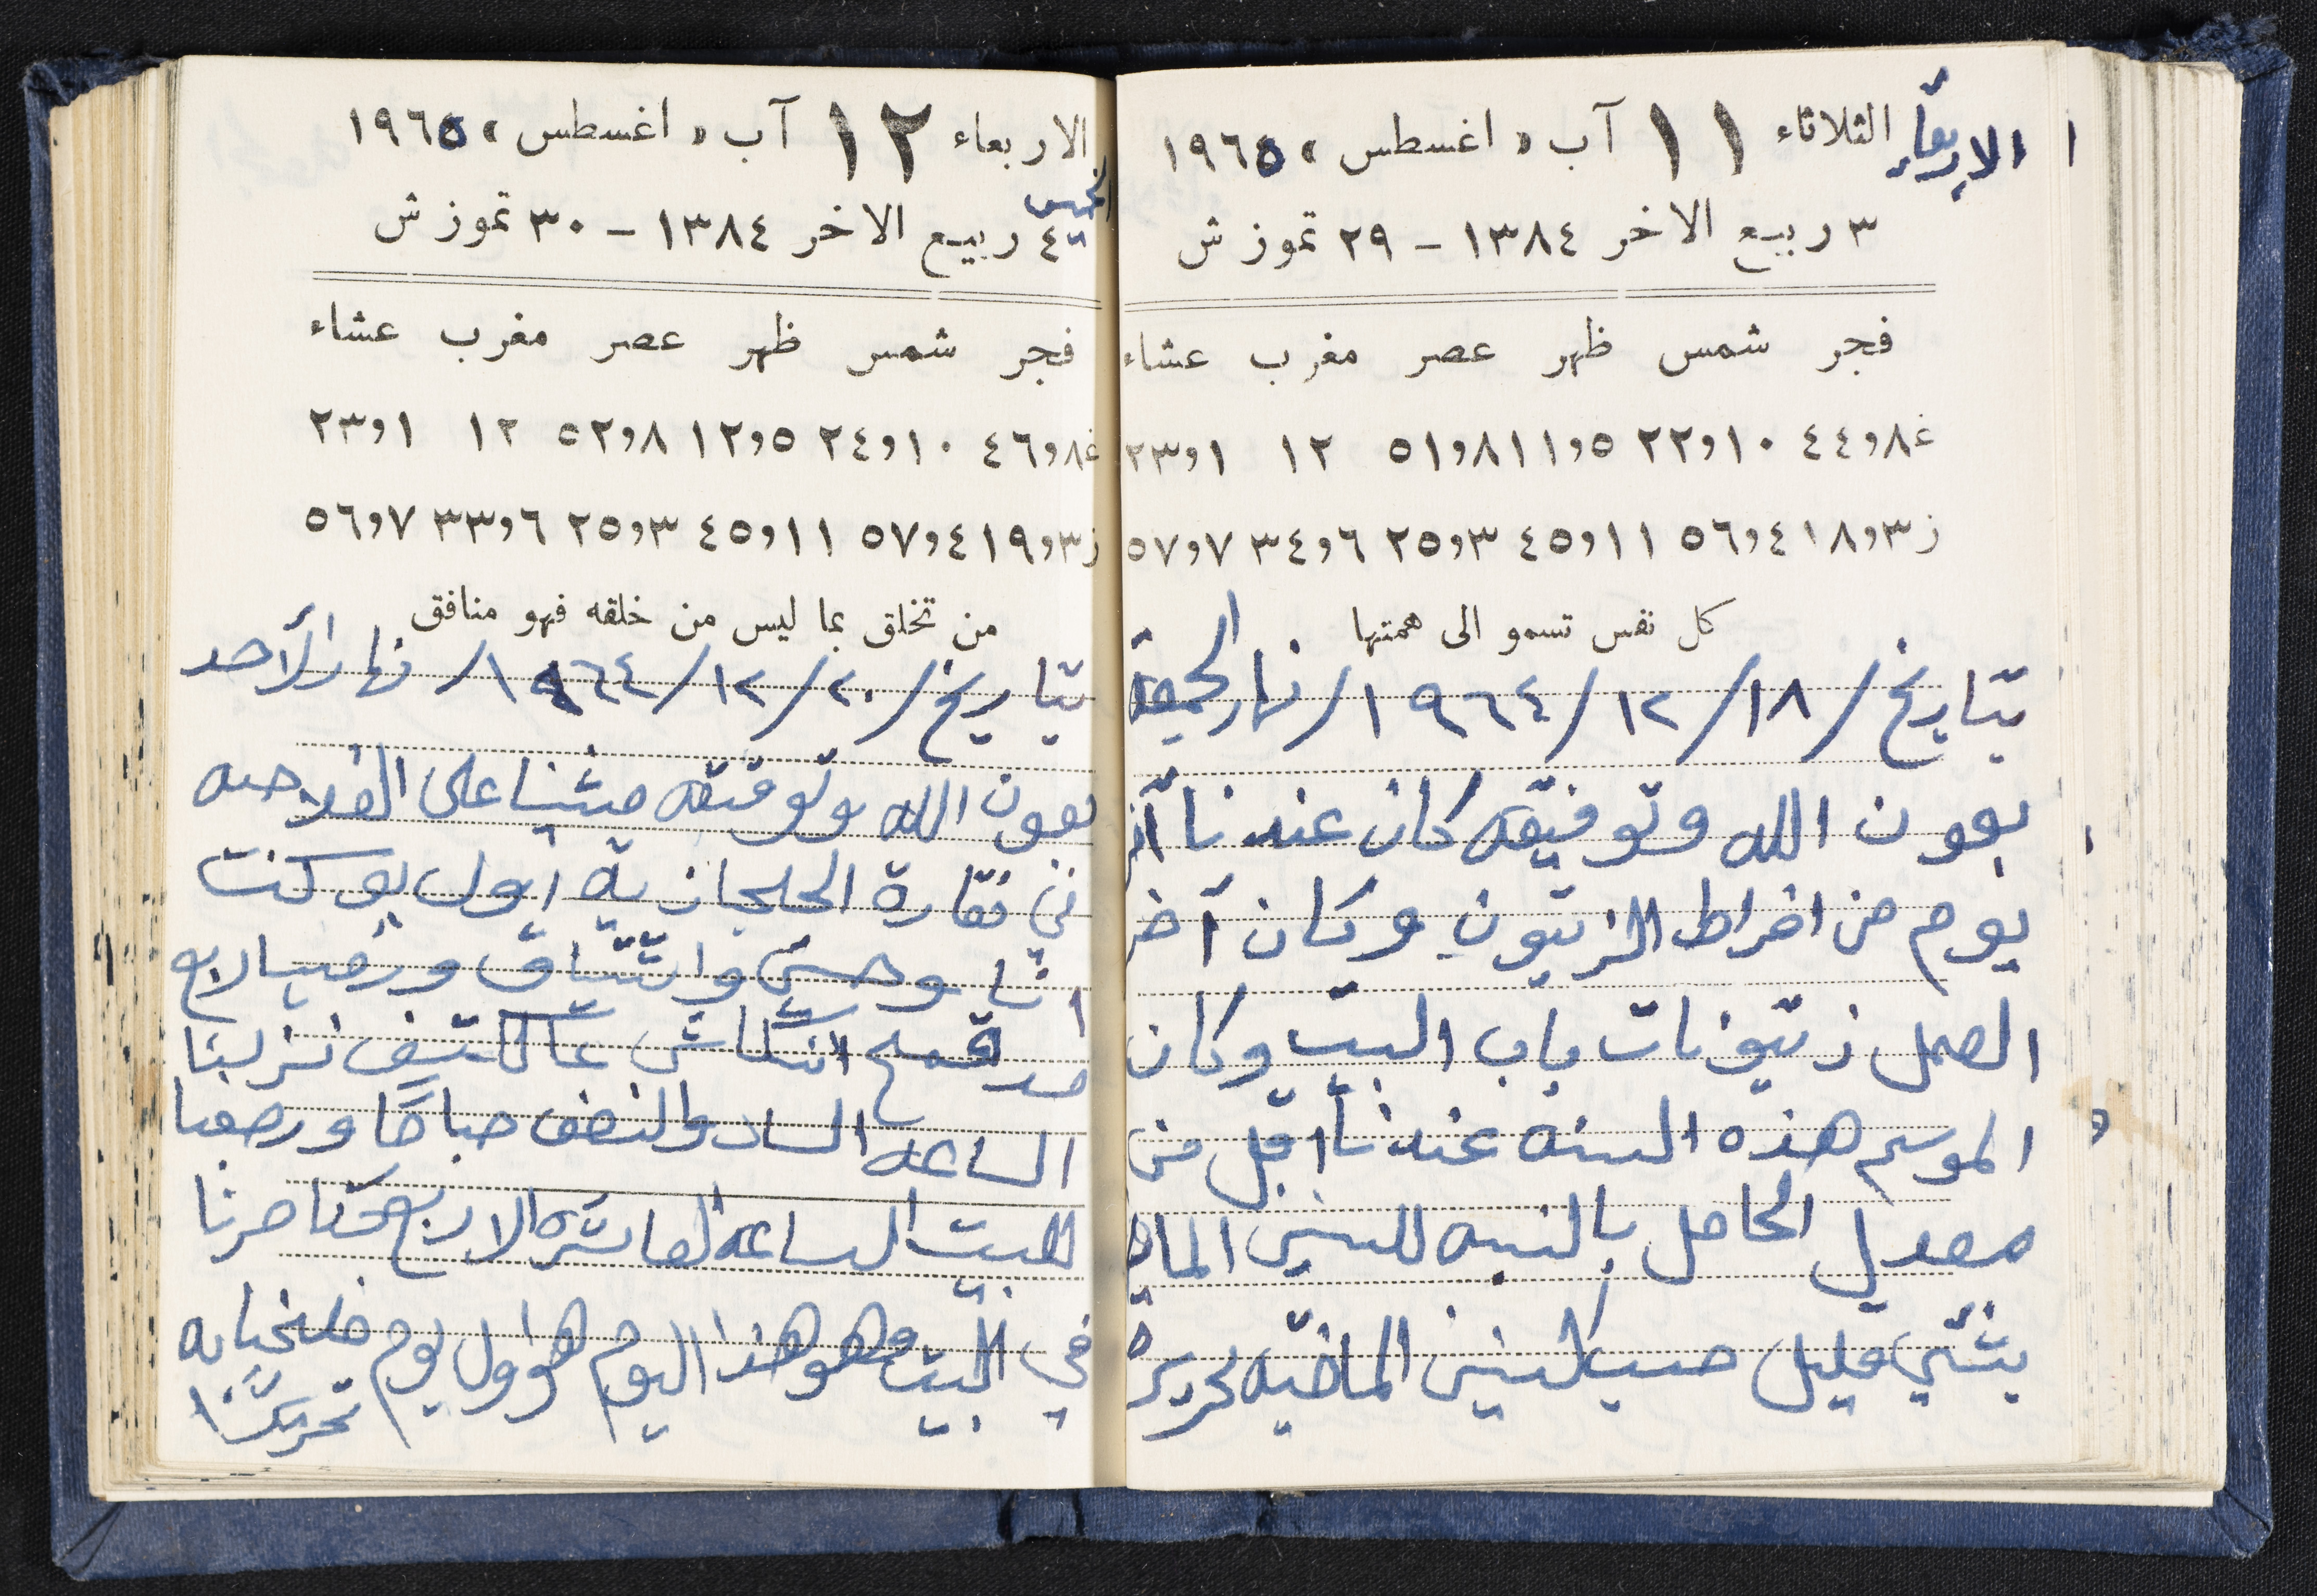 الاربعاء الثلاثاء ١١ آب « اغسطس » ١٩٦٥
٣ ربيع الاخر ١٣٨٤ – ٢٩ تموز ش
فجر شمس ظهر عصر مغرب عشاء
غ ٨و٤٤ ١٠و٢٢ ٥و١١ ٨و٥١ ١٢ ١و٢٣
ز ٣و١٨ ٤و٥٦ ١١و٤٥ ٣و٢٥ ٦و٣٤ ٧و٥٧
كل نفس تسمو الى همتها
بتاريخ / ١٨ / ١٢ / ١٩٦٤ / نهار الجمعة
بعون الله وتوفيقه كان عندنا آخر
يوم من افراط الزيتون وكان آخر
العمل زيتونات باب البيت وكان
الموسم هذه السنه عندنا اقل من
معدل الحامل بالنسبه للسنين الماضيه
بشي قليل حسب السنين الماضيه
الاربعاء ١٢ آب « اغسطس » ١٩٦٥
الخميس
٤ ربيع الاخر ١٣٨٤ – ٣٠ تموز ش
فجر شمس ظهر عصر مغرب عشاء
غ ٨و٤٦ ١٠و٢٤ ٥و١٢ ٨و٥٢ ١٢ ١و٢٣
ز ٣و١٩ ٤و٥٧ ١١و٤٥ ٣و٢٥ ٦و٣٣ ٧و٥٦
من تخلق بما ليس من خلقه فهو منافق
بتاريخ / ٢٠ / ١٢ / ١٩٦٤ / نهار الأحد
بعون الله وتوفيقه مشينا على الفلاحه
في نقارة الحلجازية اول يوم كنت
انا و
مد قمح نزلينا
الساعه السادسة والنصف صباحًا ورجعنا
للبيت الساعه العاشره الا ربع صرنا
في البيت وهو هذا اليوم هو اول يوم